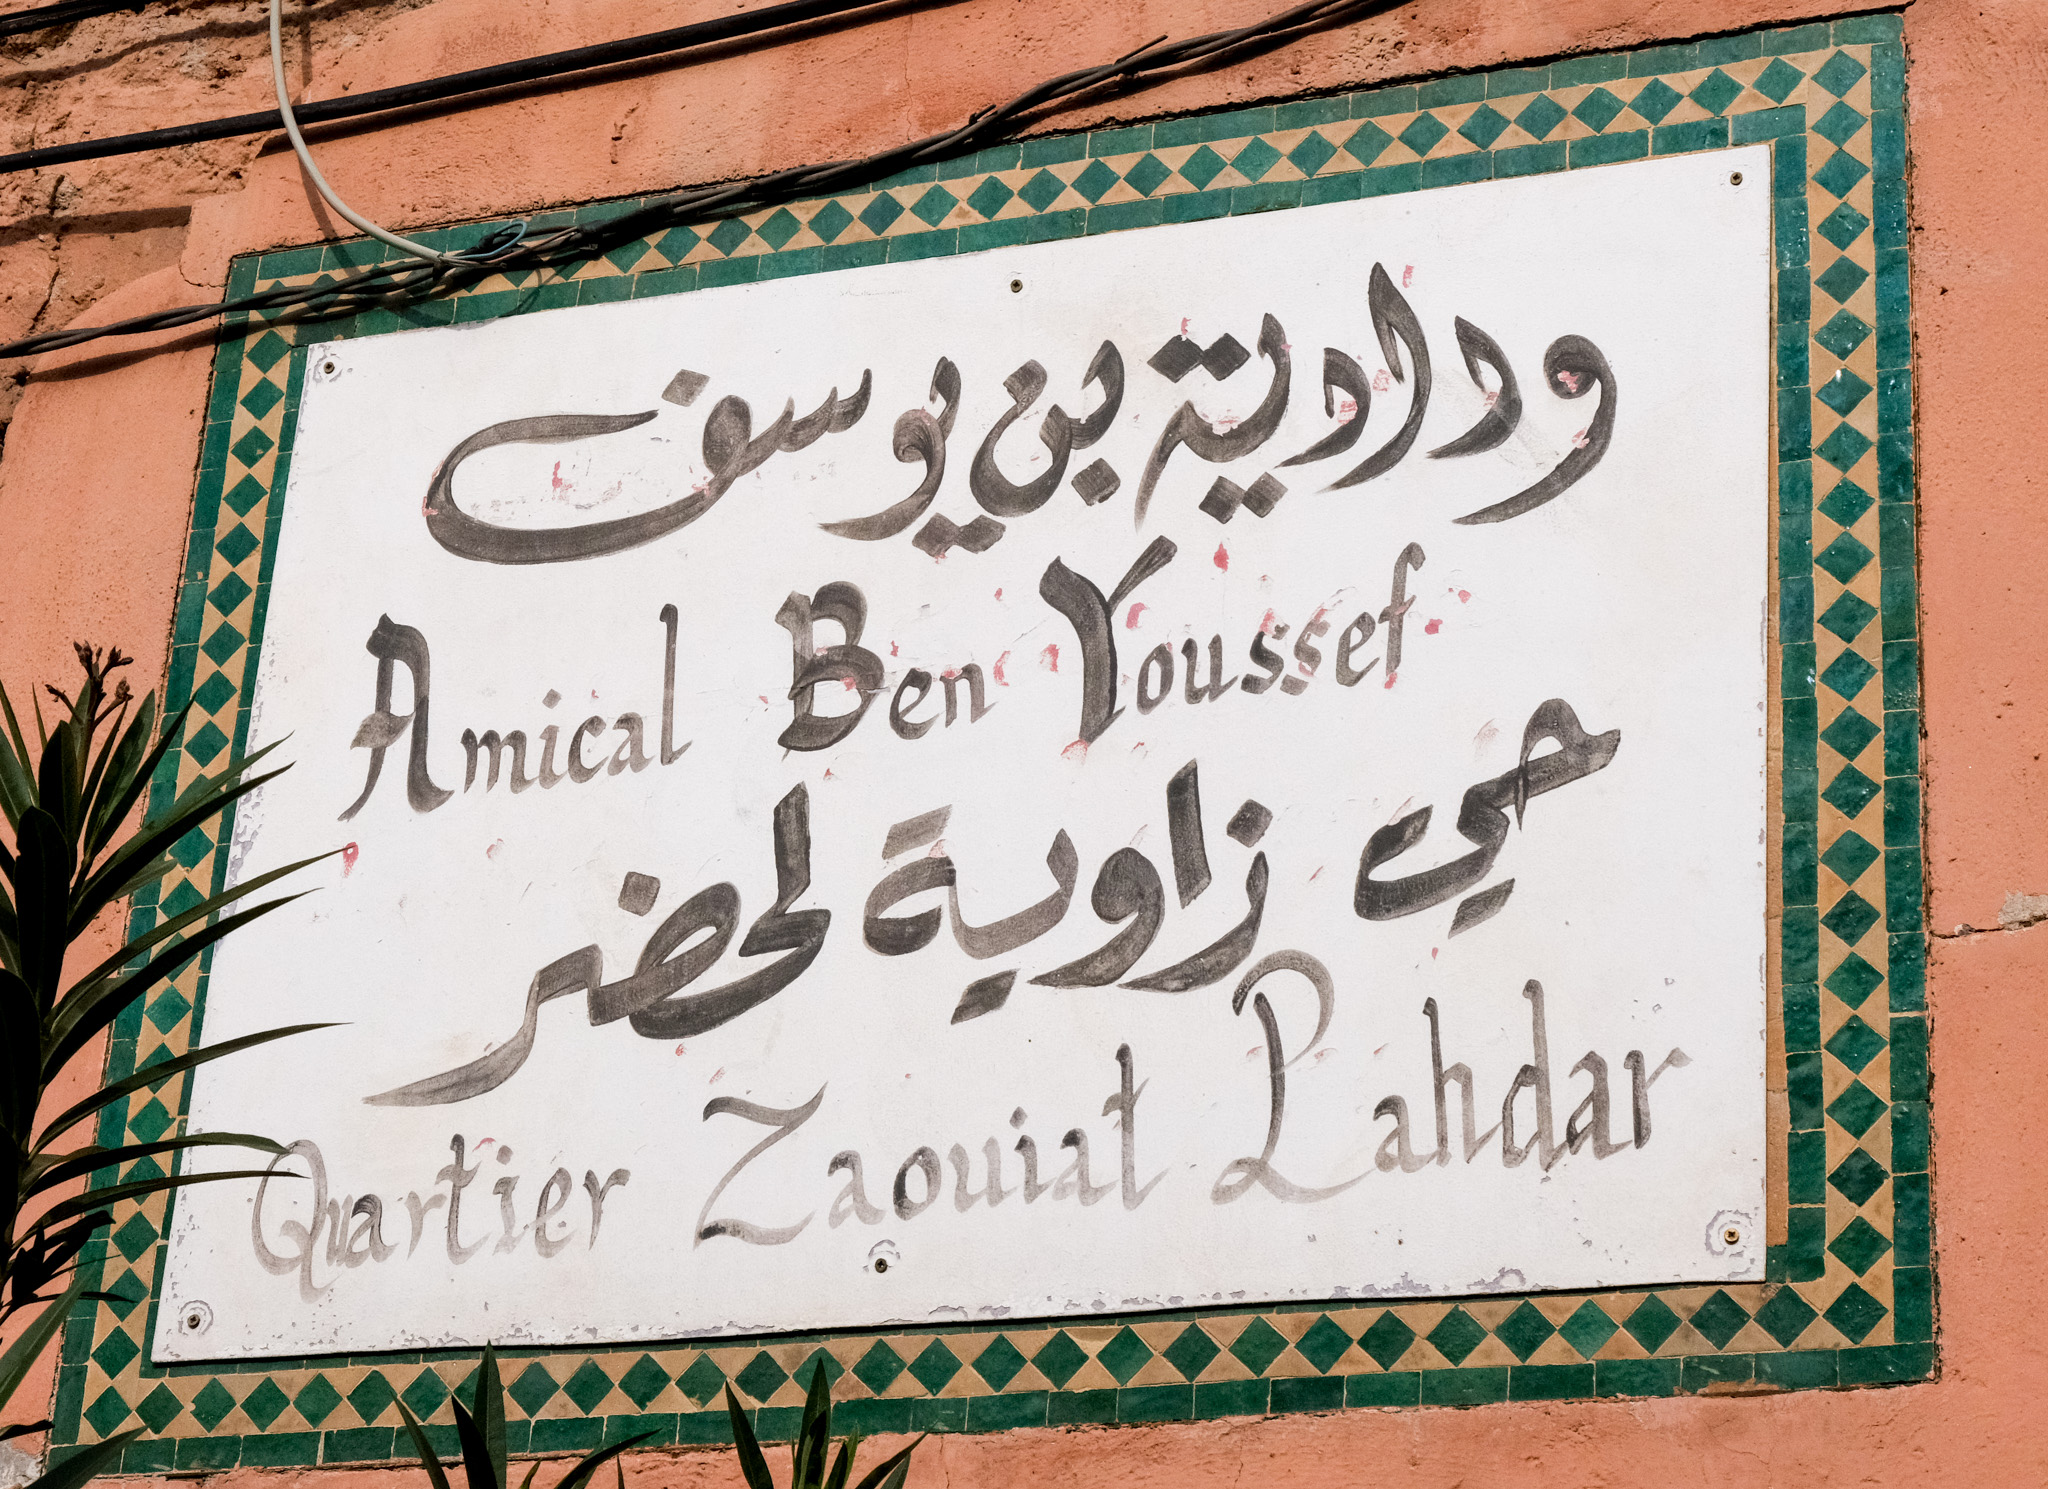 ودادية بن يوسف
Amical Ben Youssef
حي زاوية لحضر
Quartier Zaouiat Lahdar